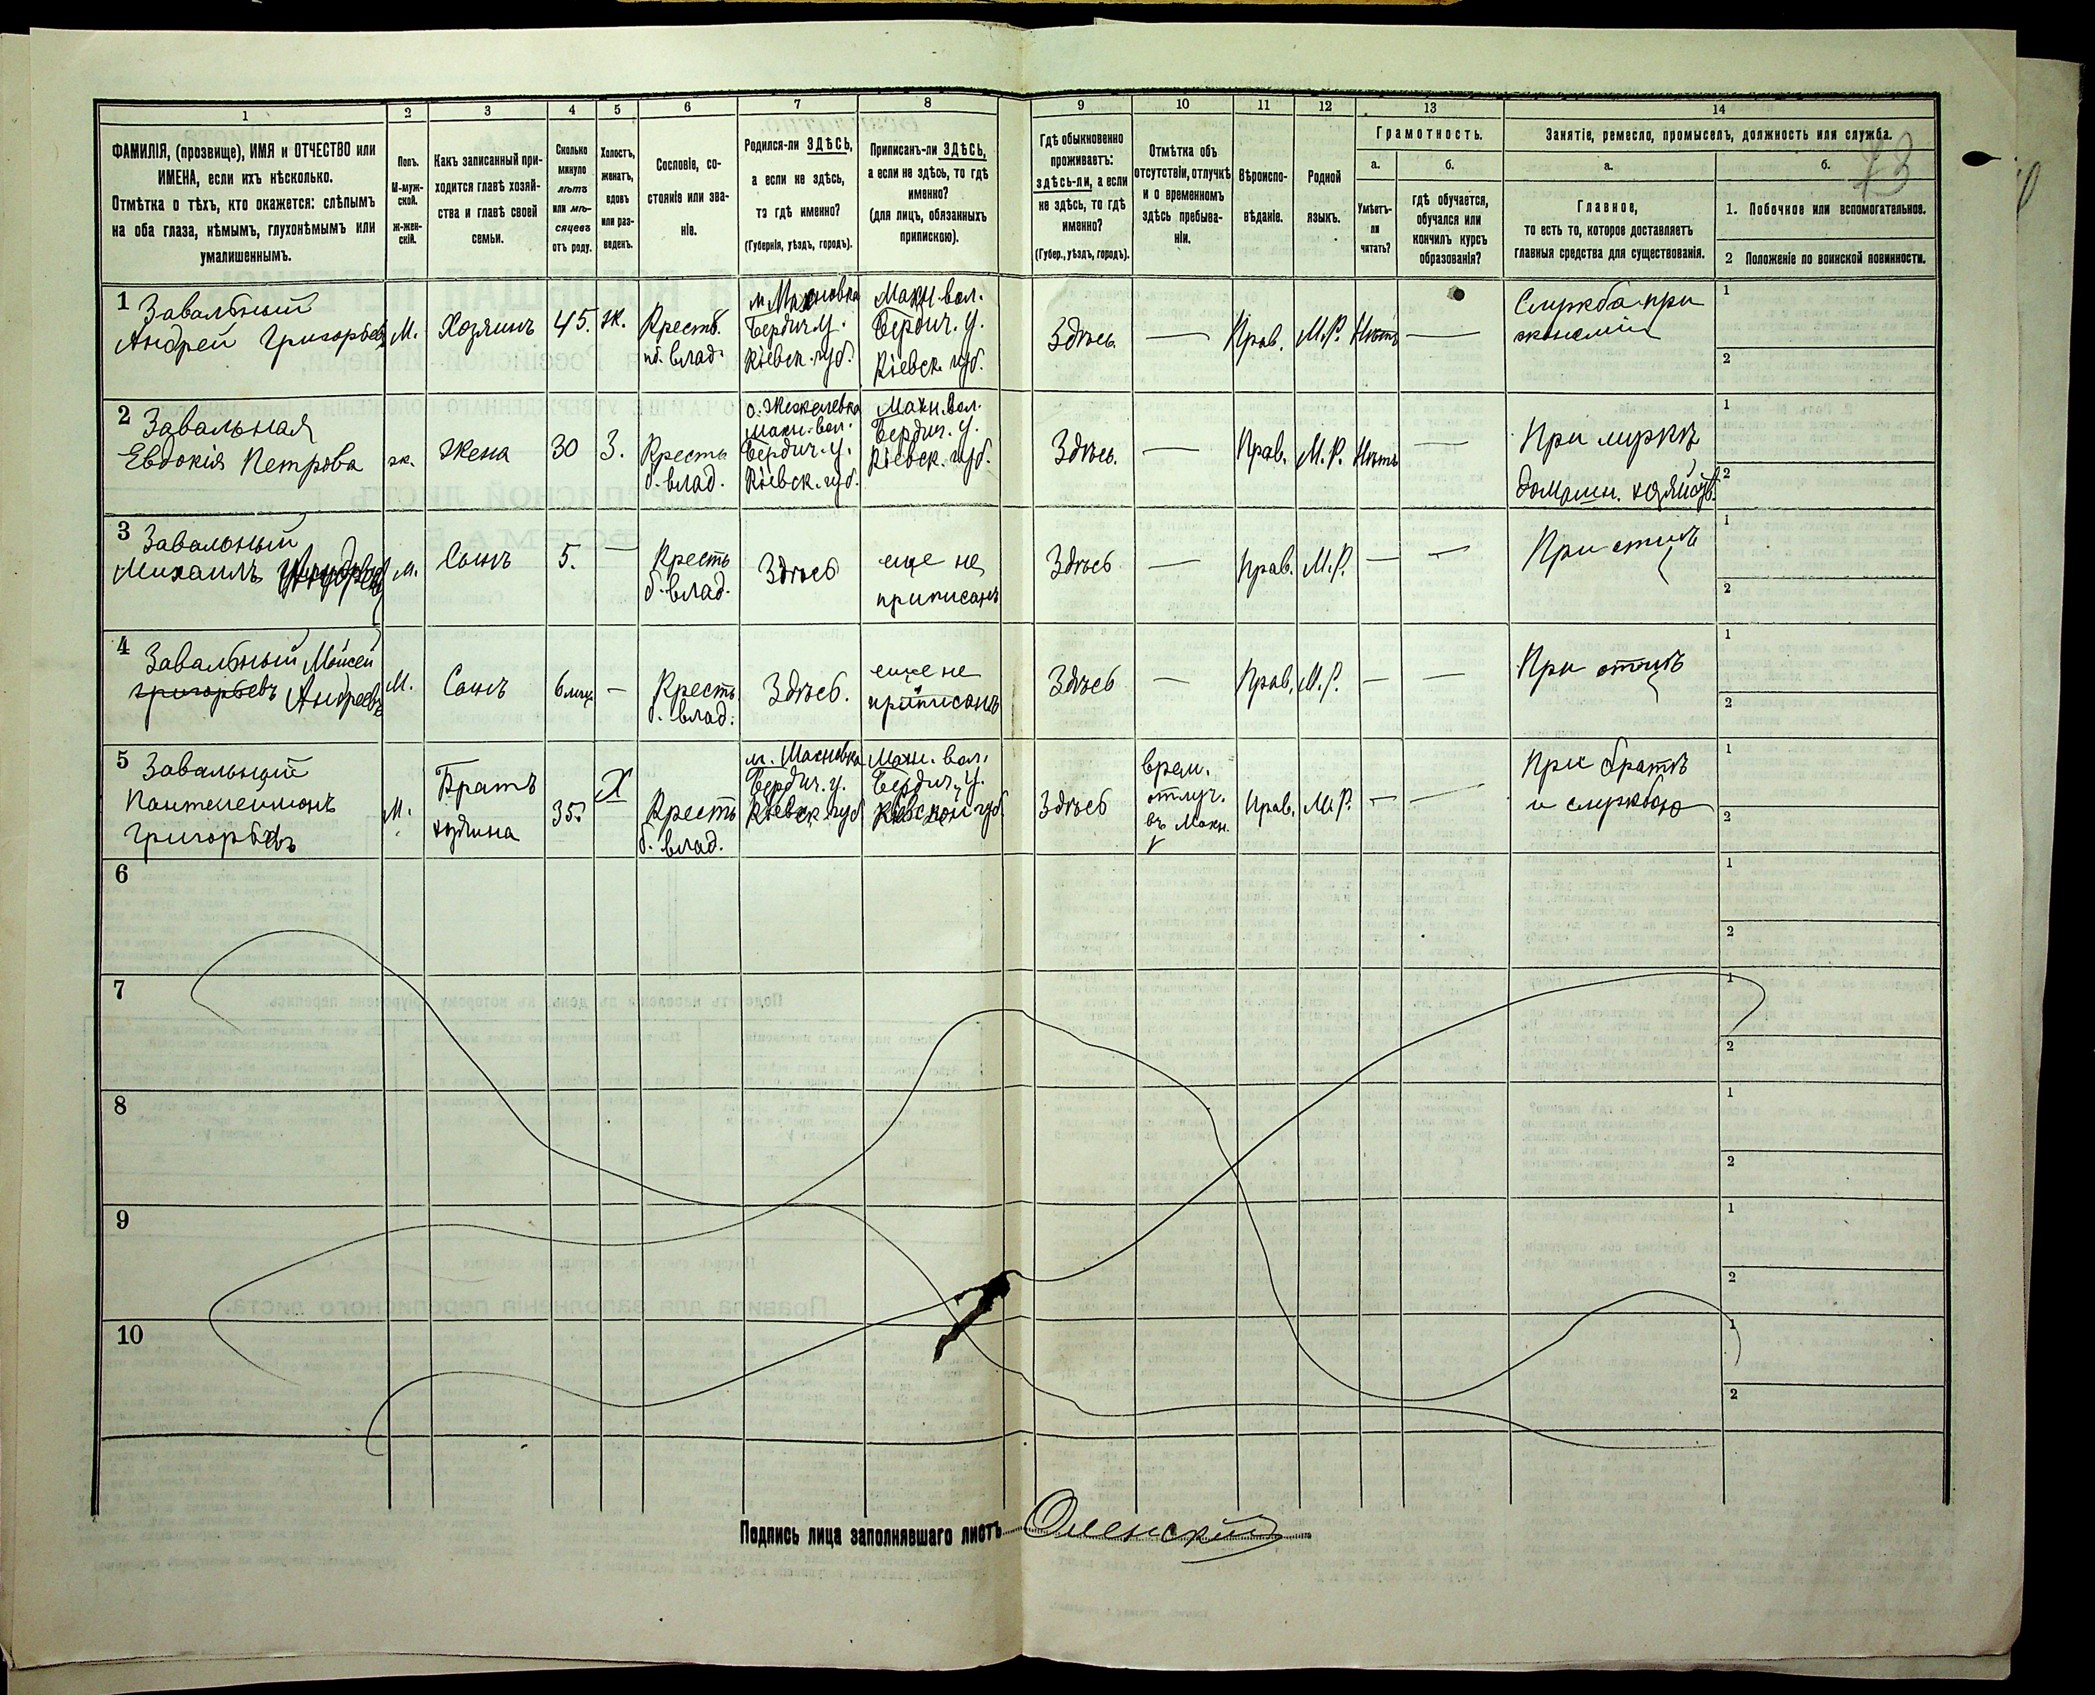 1 2 3 4 5 6 7 8 9 10 11 12 13 14
ФАМИЛІЯ, (прозвище), ИМЯ и ОТЧЕСТВО или
ИМЕНА, если ихъ нѣсколько.
Отмѣтка о тѣхъ, кто окажется: слѣпымъ
на оба глаза, нѣмымъ, глухонѣмымъ или
умалишеннымъ.
Полъ.
М-муж-
ской.
Ж-жен-
скій.
Какъ записанный при-
ходится главѣ хозяй-
ства и главѣ своей
семьи.
Сколько
минуло
лѣтъ
или мѣ-
сяцевъ
отъ роду.
Холостъ,
женатъ,
вдовъ
или раз-
веденъ.
Сословіе, со-
стояніе или зва-
ніе.
Родился-ли ЗДѢСЬ,
а если не здѣсь,
то гдѣ именно?
(Губернія, уѣздъ, городъ).
Приписанъ-ли ЗДѢСЬ,
а если не здѣсь, то гдѣ
именно?
(для лицъ, обязанныхъ
припискою).
Гдѣ обыкновенно
проживаетъ:
здѣсь-ли, а если
не здѣсь, то гдѣ
именно?
(Губер., уѣздъ, городъ).
Отмѣтка объ
отсутствіи, отлучкѣ
и о временномъ
здѣсь пребыва-
ніи.
Вѣроиспо-
вѣданіе.
Родной
языкъ.
Грамотность.
а.
Умѣетъ-
ли
читать?
б.
гдѣ обучается,
обучался или
кончилъ курсъ
образованія?
Занятіе, ремесло, промыселъ, должность или служба.
а.
Главное,
то есть то, которое доставляетъ
главныя средства для существованія.
б.
1. Побочное или вспомогательное.
2 Положеніе по воинской повинности.
1 Завальный
Андрей Григорьев
М.
Хозяинъ
45.
ж.
Крестб.
б. влад.
м. Махновка
Бердич. у.
Кіевск. губ.
Махн. вол.
Бердич. у.
Кіевск. губ.
Здѣсь.
—
Прав.
М.Р.
Нѣтъ
—
Служба при
экономіи
1
2
2 Завальная
Евдокія Петрова
ж.
Жена
30
З.
Кресть
б. влад.
с. Жежелевка
Махн. вол.
Бердич. у.
Кіевск. губ.
Махн. вол.
Бердич. у.
Кіевск. губ.
Здѣсь.
—
Прав.
М.Р.
Нѣтъ
—
При мужѣ
домашн. хозяйств.
1
2
3 Завальный
Михаилъ
М.
Сынъ
5.
—
Кресть
б. влад.
Здѣсь
еще не
приписанъ
Здѣсь
—
Прав.
М.Р.
—
—
При отцѣ
1
2
4 Завальный Мойсей
Григорьевъ Андреевъ
М.
Сынъ
—
Кресть
б. влад.
Здѣсь.
еще не
приписанъ
Здѣсь
—
Прав.
М.Р.
—
—
При отцѣ
1
2
5 Завальный
Пантелеймонъ
Григорьевъ
М.
Братъ
хозяина
35.
Х
Кресть
б. влад.
м. Махновка
Бердич. у.
Кіевск. губ
Махн. вол.
Бердич. у.
Кіевской губ
Здѣсь
врем.
отлуч.
въ Махн.
Прав.
М.Р.
—
—
При братѣ
и службою
1
2
6
1
2
7
1
2
8
1
2
9
1
2
10
1
2
Подпись лица заполнявшаго листъ